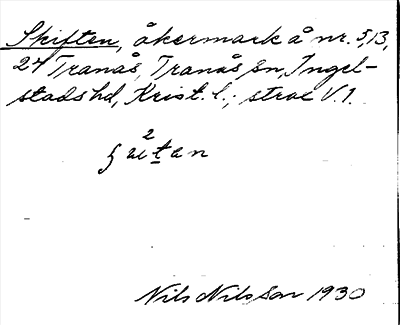 Skiften, åkermark å nr. 5, 13,
24 Tranås, Tranås sn, Ingel-
stads hd, Krist. l.; stroe V. 1.
2
Nils Nilsson 1930